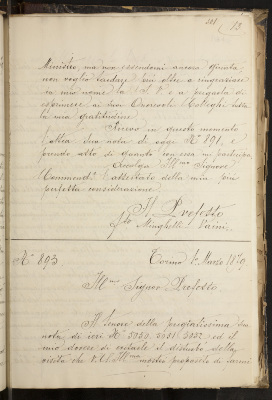 13
Ministro, ma non essendomi ancora giunta
non voglio tardare più oltre a ringraziare
in suo nome la S. V. e a pregarla di
esprimere ai suoi Onorevoli Colleghi tutta
la mia gratitudine.
Ricevo in questo momento
la Sua nota di oggi N° 891, e
prendo atto di quanto con essa mi partecipa
Accolga Ill.mo Signor
Commend.e l'attestato della mia più
perfetta considerazione
Il Prefetto
Minghelli Vaini
N° 893
Torino 6 Marzo 1870
Ill.mo Signor Prefetto
Il tenore della pregiatissima Sua
nota di ieri N° 3050 ed il
mio dovere di evitarle il disturbo della
visita che V. S. Ill.ma mostra proposito di farmi